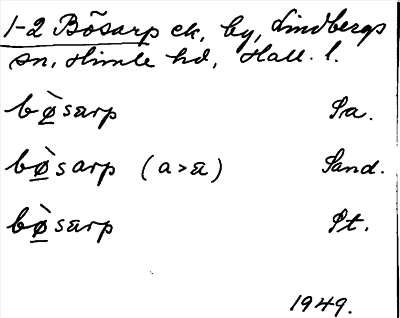 1-2 Bösarp ek, by, Lindbergs
sn, Himle hd, Hall. l.
bø̱̀sarp Sa.
bø̱̀sarp (a>ā) Sand.
bø̱̀sarp St.
1949.